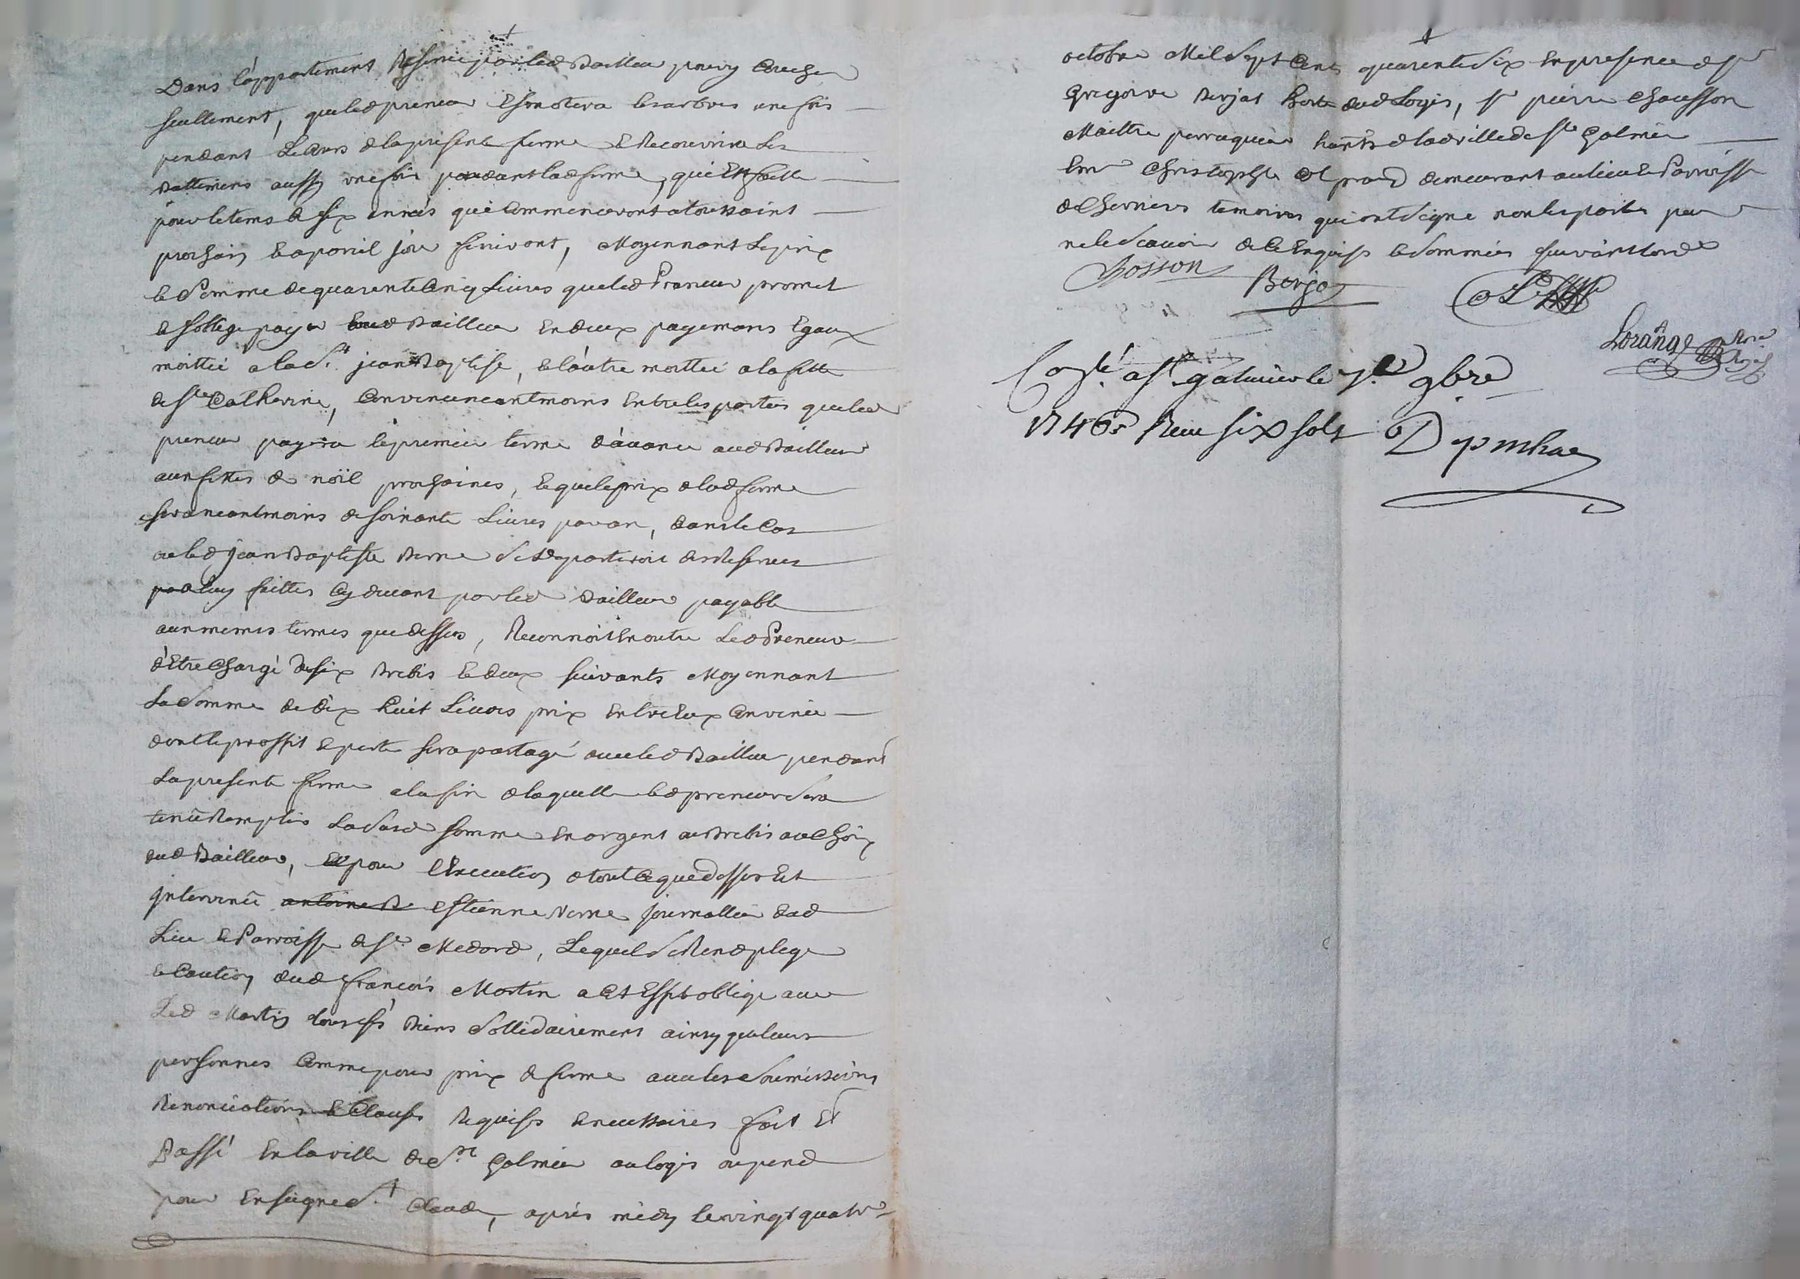 Dans l'appartement Reservé par led Bailleur pour y Coucher
seullement, que led preneur Esmotera les arbres une fois
pendant le Cours de la presente ferme et Recouvrira les
Battimens aussy une fois pendant lad ferme, qui Est faitte
pour le tems de six années qui Commenceront a toussaint
prochain et a pareil jour finiront, Moyennant le prix
et Somme de quarente Cinq Livres que led Preneur promet
et s'oblige payer aud Bailleur En deux payemans Egaux
moittié a la St jean Baptiste, et l'autre moittié a la fette
de Ste Catherine, Convenu neantmoins Entre les parties que led
preneur payera le premier terme d'avance aud Bailleur
aux fettes de noël prochaines, et que le prix de lad ferme
sera neantmoins de soixante Livres par an, dans le Cas
ou led jean Baptiste Berne se departiroit des Reserves
par luy faittes Cy devant par led Bailleur payable
aux memes termes que dessus, Reconnoit En outre Led Preneur
d'Etre Chargé de six Brebis et deux suivants Moyennant
La Somme de dix huit Livres prix Entre Eux Convenu
dont le proffit et perte sera partagé avec led Bailleur pendant
La presente ferme a la fin de laquelle led preneur Sera
tenu Remplir Lad somme En argent ou Brebis au Choix
dud Bailleur, et pour l'Execution de tout Ce que dessus Est
intervenu antoine Be Estienne Berne journallier dud
Lieu et Parroisse de St Medard, Lequel se Rend plege
et Caution dud françois Martin a Cet Effet oblige avec
Led Martin tous ses Biens Sollidairement ainsy que leurs
personnes Comme pour prix de ferme avec les Soumissions
Renonciations et Clauses Requises et necessaires fait Et
Passé En la ville de St Galmier au logis ou pend
pour Enseigne St Claude, après midy le vingt quatre
octobre Mil Sept Cent quarente Six En presence de Sr
Gregoire Berjat hoste dud Logis, Sr pierre Chausson
Maitre perruquier hants de lad ville de St Galmier
Christophle demeurant au lieu et Parroisse
temoins qui ont Signé non les parties pour
ne le Scavoir de Ce Enquises et Sommées suivant l'ord
Chosson Berjat
Lorange
Conlé a St galmier le 7e 9bre
1746 Reçu six sols